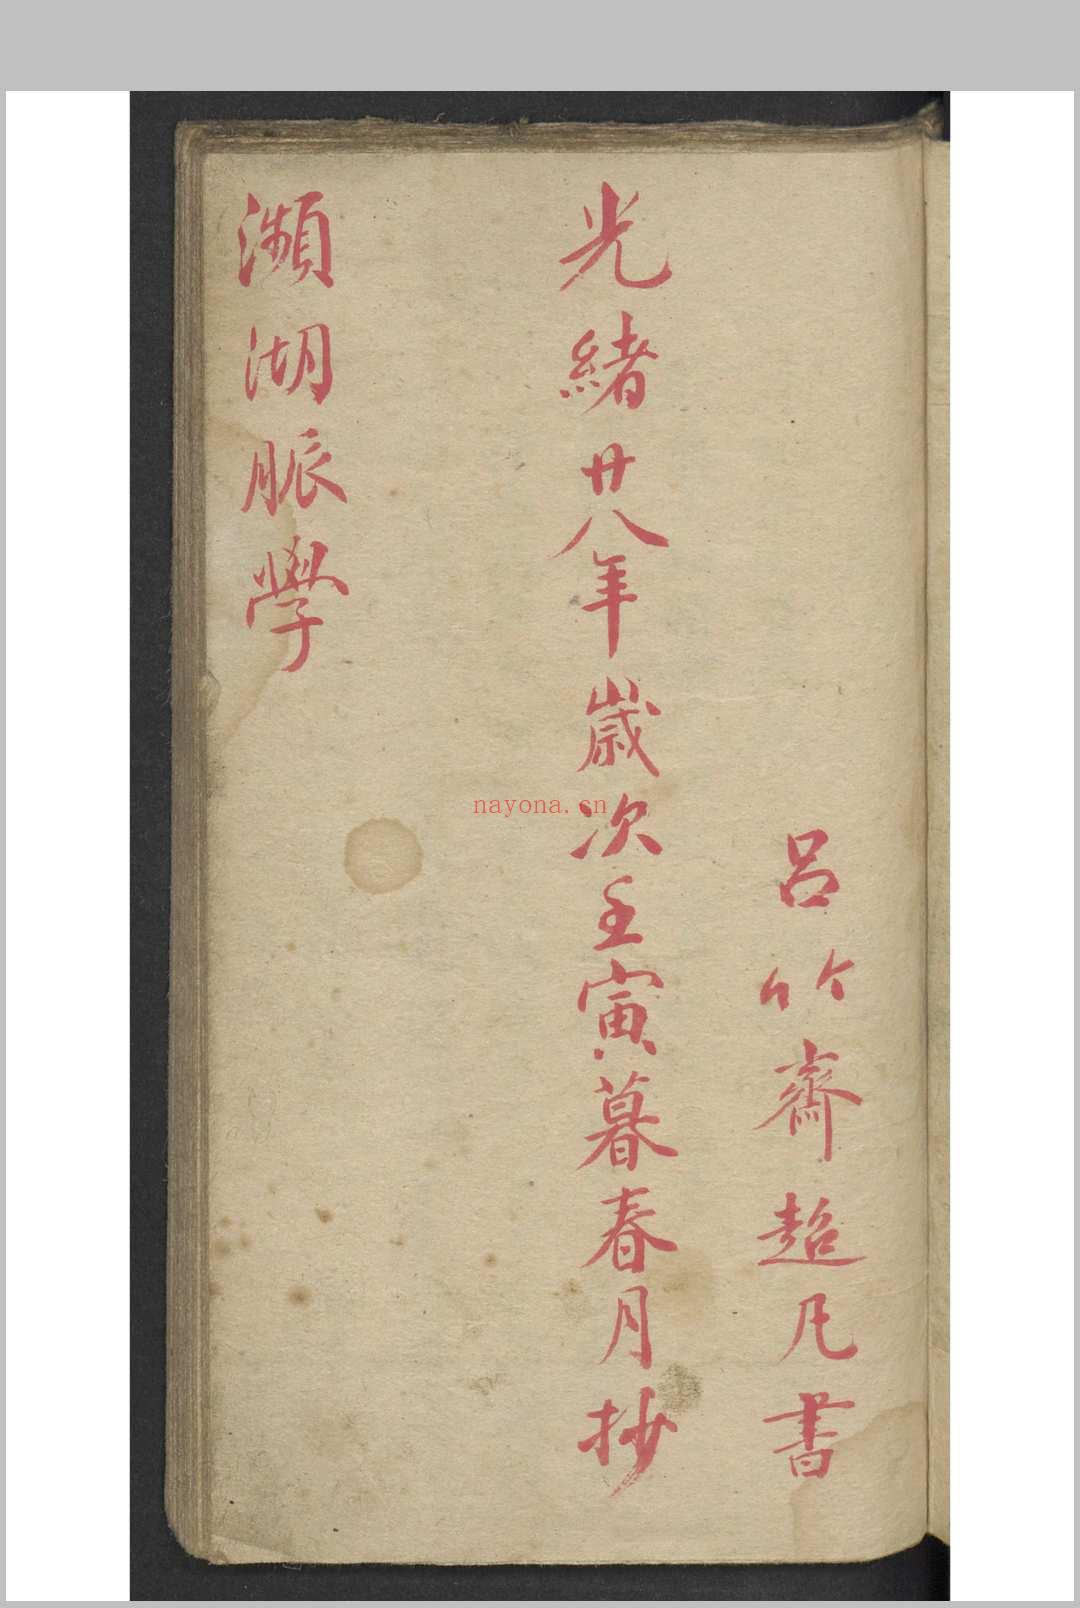 呂竹齋超凡書
光緒廿八年歲次壬寅暮春月抄
瀕湖脈學
nayona.cn